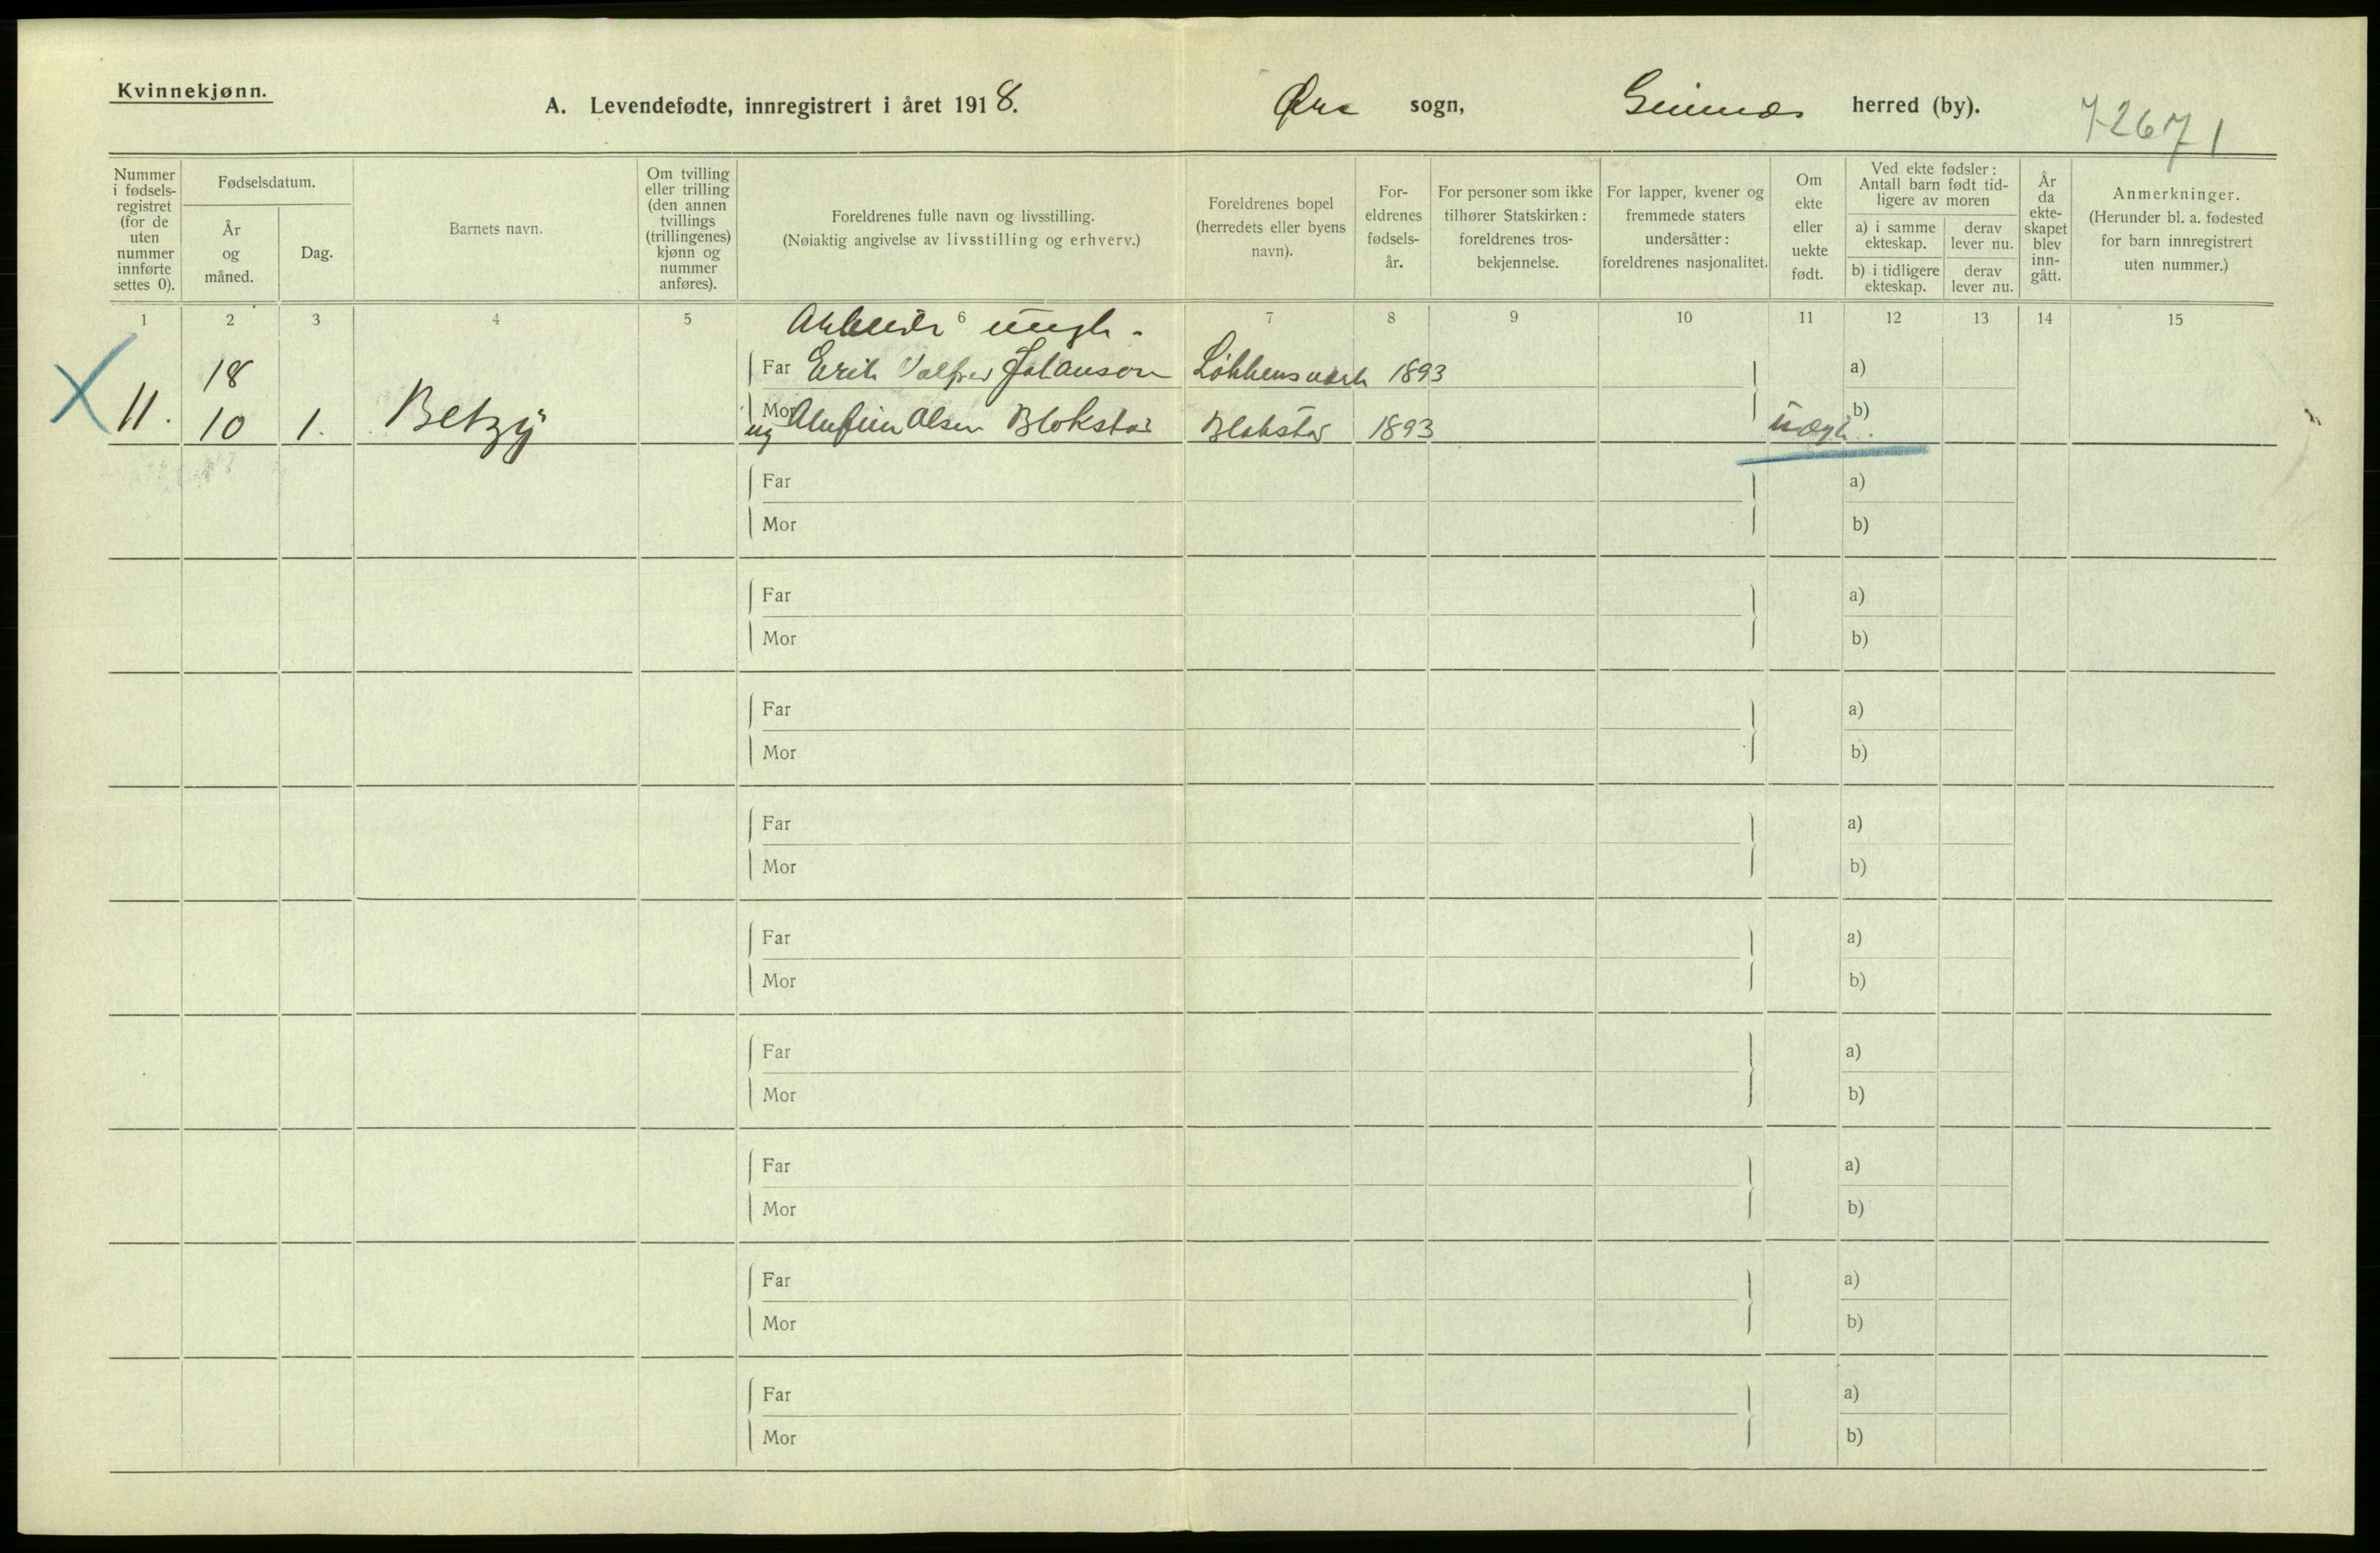 Kvinnekjønn.
A. Levendefødte, innregistrert i året 1918.
Øre sogn, Gimnæs herred (by).
72671
Nummer i fødsels-registret (for de uten nummer innførte settes 0).
Fødselsdatum.
År og måned.
Dag.
Barnets navn.
Om tvilling eller trilling (den annen tvillings (trillingenes) kjønn og nummer anføres).
Foreldrenes fulle navn og livsstilling.
(Nøiaktig angivelse av livsstilling og erhverv.)
Foreldrenes bopel (herredets eller byens navn).
For-eldrenes fødsels-år.
For personer som ikke tilhører Statskirken: foreldrenes tros-bekjennelse.
For lapper, kvener og fremmede staters undersåtter: foreldrenes nasjonalitet.
Om ekte eller uekte født.
Ved ekte fødsler: Antall barn født tid-ligere av moren
a) i samme ekteskap.
derav lever nu.
b) i tidligere ekteskap.
derav lever nu.
År da ekte-skapet blev inn-gått.
Anmerkninger.
(Herunder bl. a. fødested for barn innregistrert uten nummer.)
1 2 3 4 5 6 7 8 9 10 11 12 13 14 15
Arbeider ungk.
18 Far Erik Valfred Johanson Løkkens værk 1893 a)
11. 10 1. Betzy Mor Olsen Blokstad Blokstad 1893 uægte. b)
ug
Far a)
Mor b)
Far a)
Mor b)
Far a)
Mor b)
Far a)
Mor b)
Far a)
Mor b)
Far a)
Mor b)
Far a)
Mor b)
Far a)
Mor b)
Far a)
Mor b)